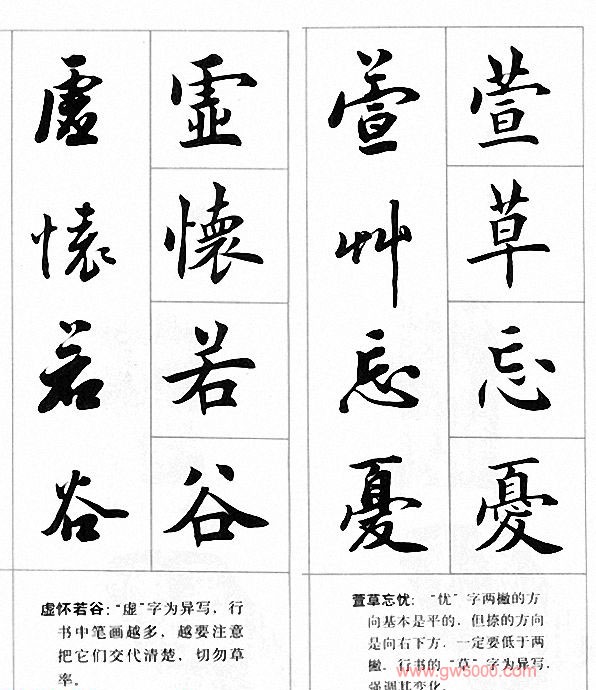 萱草忘憂
萱艸忘憂
虛懷若谷
虛懷若谷
萱草忘忧：“忧”字两撇的方
向基本是平的，但捺的方向
是向右下方，一定要低于两
撇。行书的“草”字为异写，
强调其变化。
虚怀若谷：“虚”字为异写，行
书中笔画越多，越要注意
把它们交代清楚，切勿草
率。
www.gw5000.com